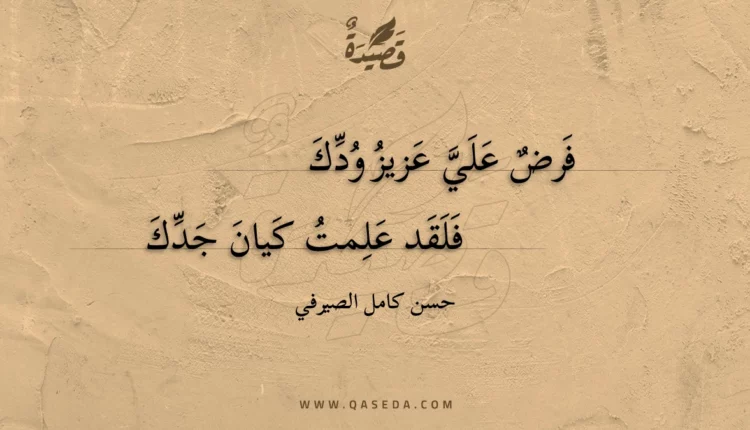 قَصِيْدَةٌ
فَرضٌ عَلَيَّ عَزيزُ وُدِّكَ
فَلَقَد عَلِمتُ كَيانَ جَدِّكَ
حسن كامل الصيرفي
WWW.QASEDA.COM